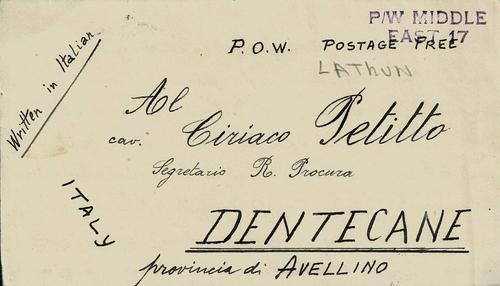 P/W MIDDLE
EAST 17
P.O.W. POSTAGE FREE
LATHUN
Written in Italian
Al
cav. Ciriaco Petitto
Segretario R. Procura
ITALY
DENTECANE
provincia di AVELLINO